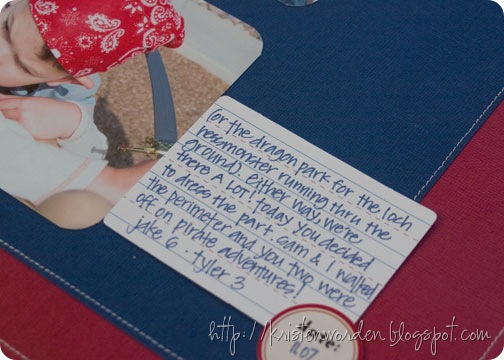 (or the dragon park for the loch
nessmonster running thru the
ground). either way. we're
there A LOT. today you decided
to dress the part. cam & I walked
the perimeter and you two were
off on pirate adventures!
jake 6 . tyler 3
http://kristenworden.blogspot.com